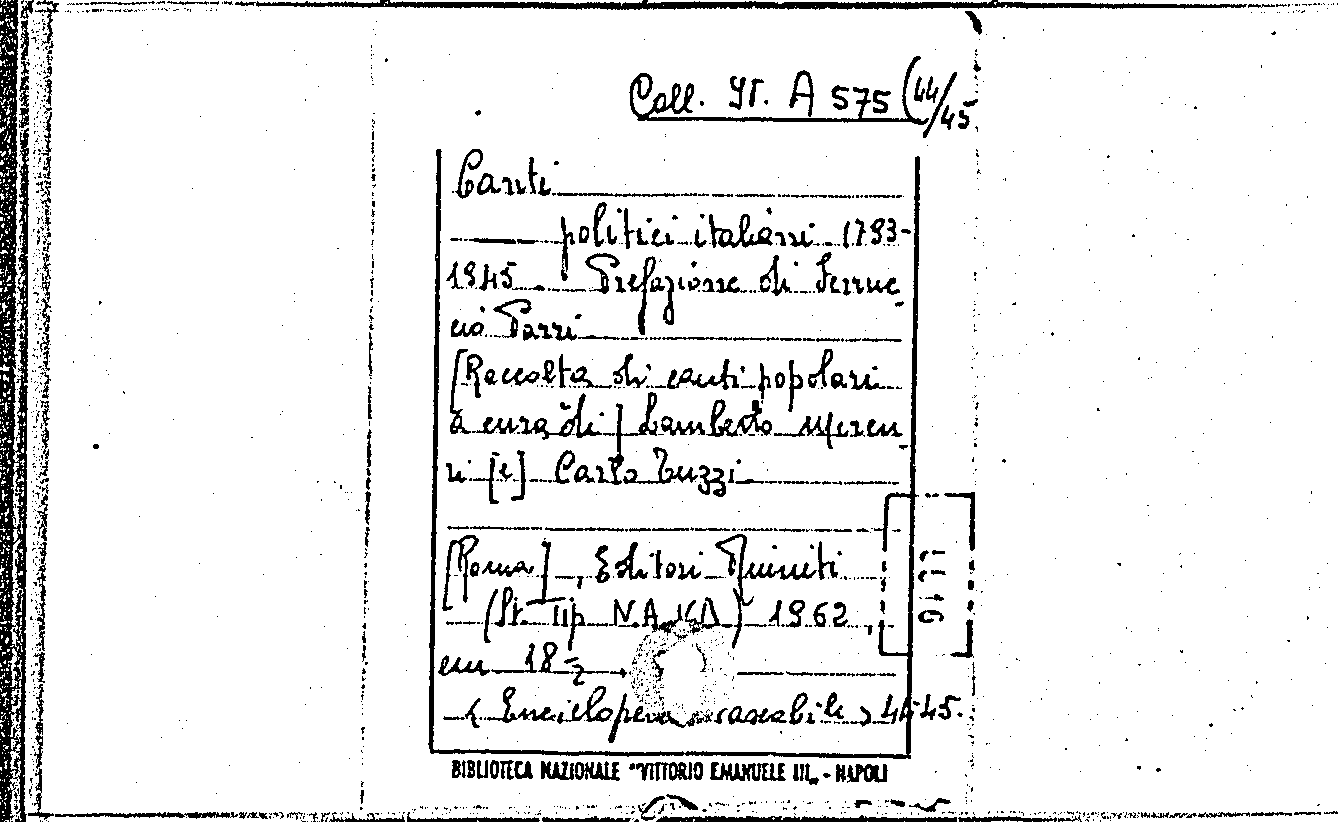 Coll. It. A 575 (44/45
Canti
politici italiani. 1793-
1945. Prefazione di Ferruc-
cio Parri
[Raccolta di canti popolari
a cura di] Lamberto Mercu-
ri [e] Carlo Tuzzi.
[Roma], Editori Riuniti
(St. Tip. N.A.V.A) 1962,
cm 18½.
< Enciclopedia tascabile > 44-45.
91713
BIBLIOTECA NAZIONALE "VITTORIO EMANUELE III„ - NAPOLI